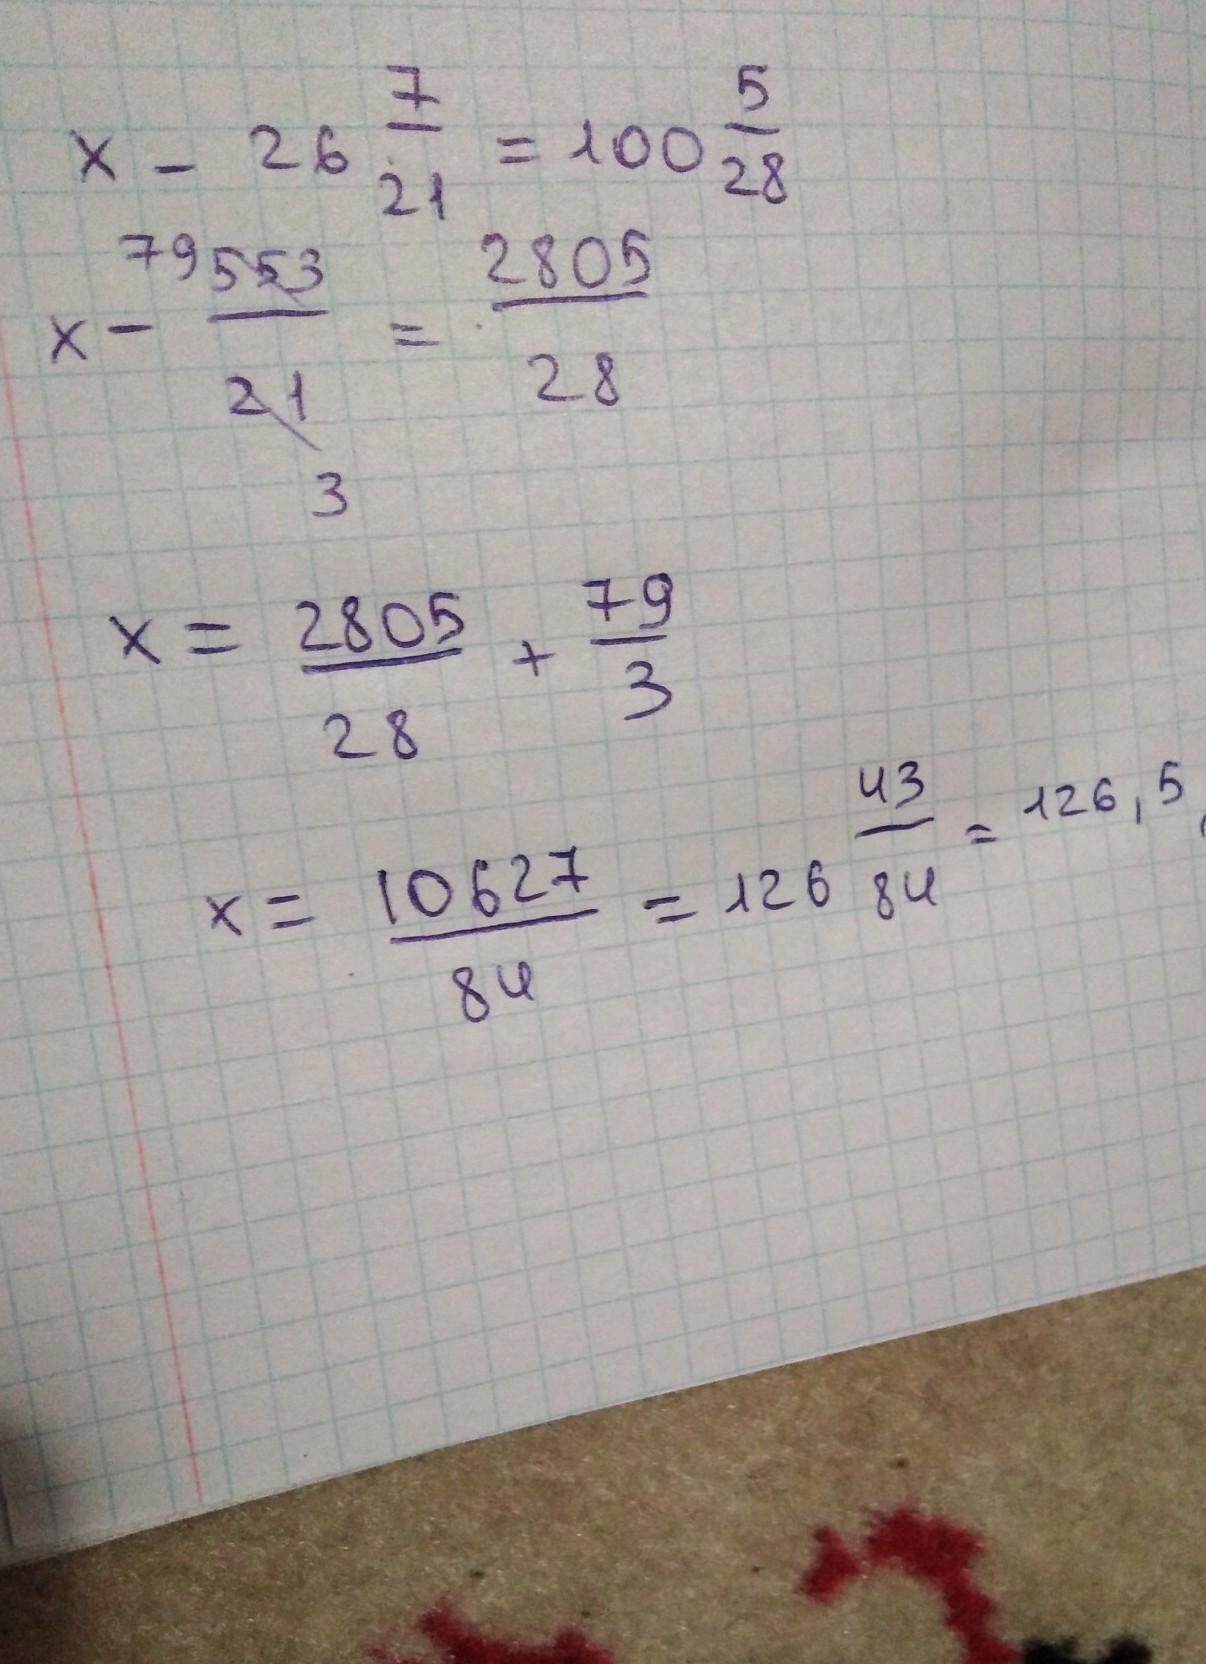 x - 26 7/21 = 100 5/28
x - 79 553/21 3 = 2805/28
x = 2805/28 + 79/3
x = 10627/84 = 126 43/84 = 126,5